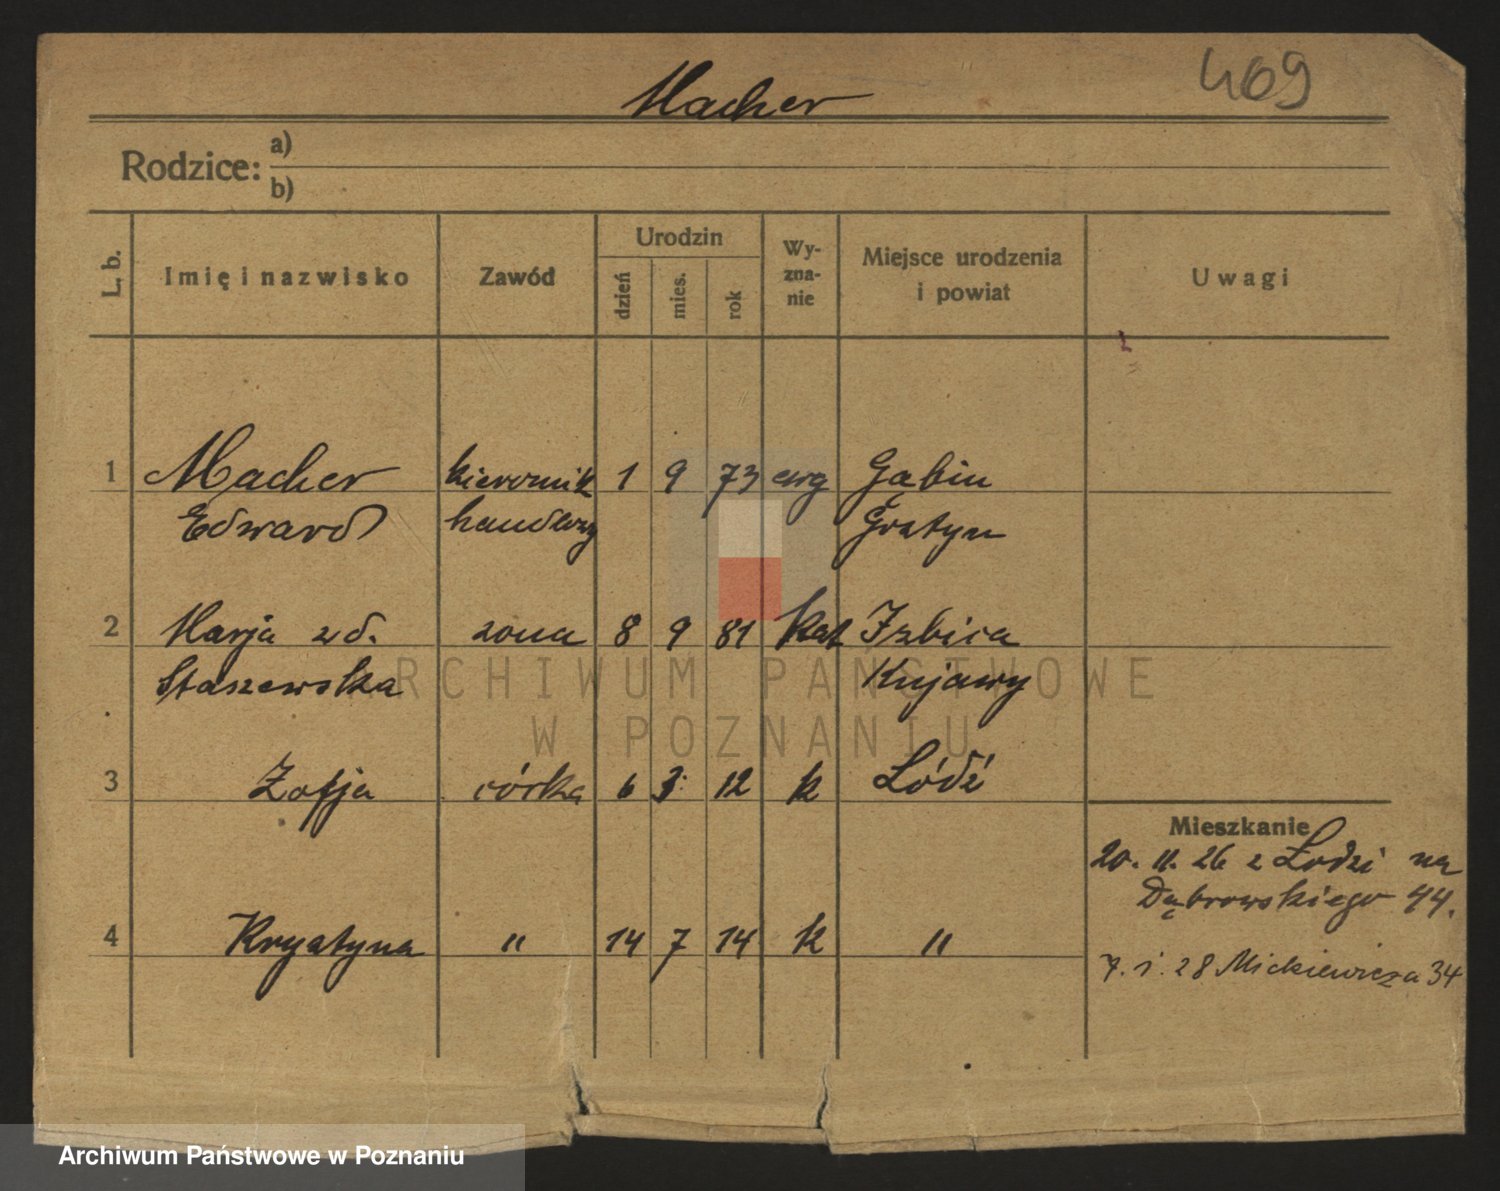 409
Macher
Rodzice: a)
b)
L. b.
Imię i nazwisko
Zawód
Urodzin
dzień
mies.
rok
Wy-
zna-
nie
Miejsce urodzenia
i powiat
Uwagi
1 Macher kierownik 1 9 73 ewg Gąbin
Edward handlowy Gostyn
2 Marja zd. żona 8 9 81 kat Izbica
Staszewska Kujawy
3 Zofja córka 6 3 12 k Łódź
Mieszkanie
20. 11. 26 z Łodzi na
Dąbrowskiego 44.
4 Krystyna " 14 7 14 k "
7. 1. 28 Mickiewicza 34
ARCHIWUM PAŃSTWOWE
W POZNANIU
Archiwum Państwowe w Poznaniu